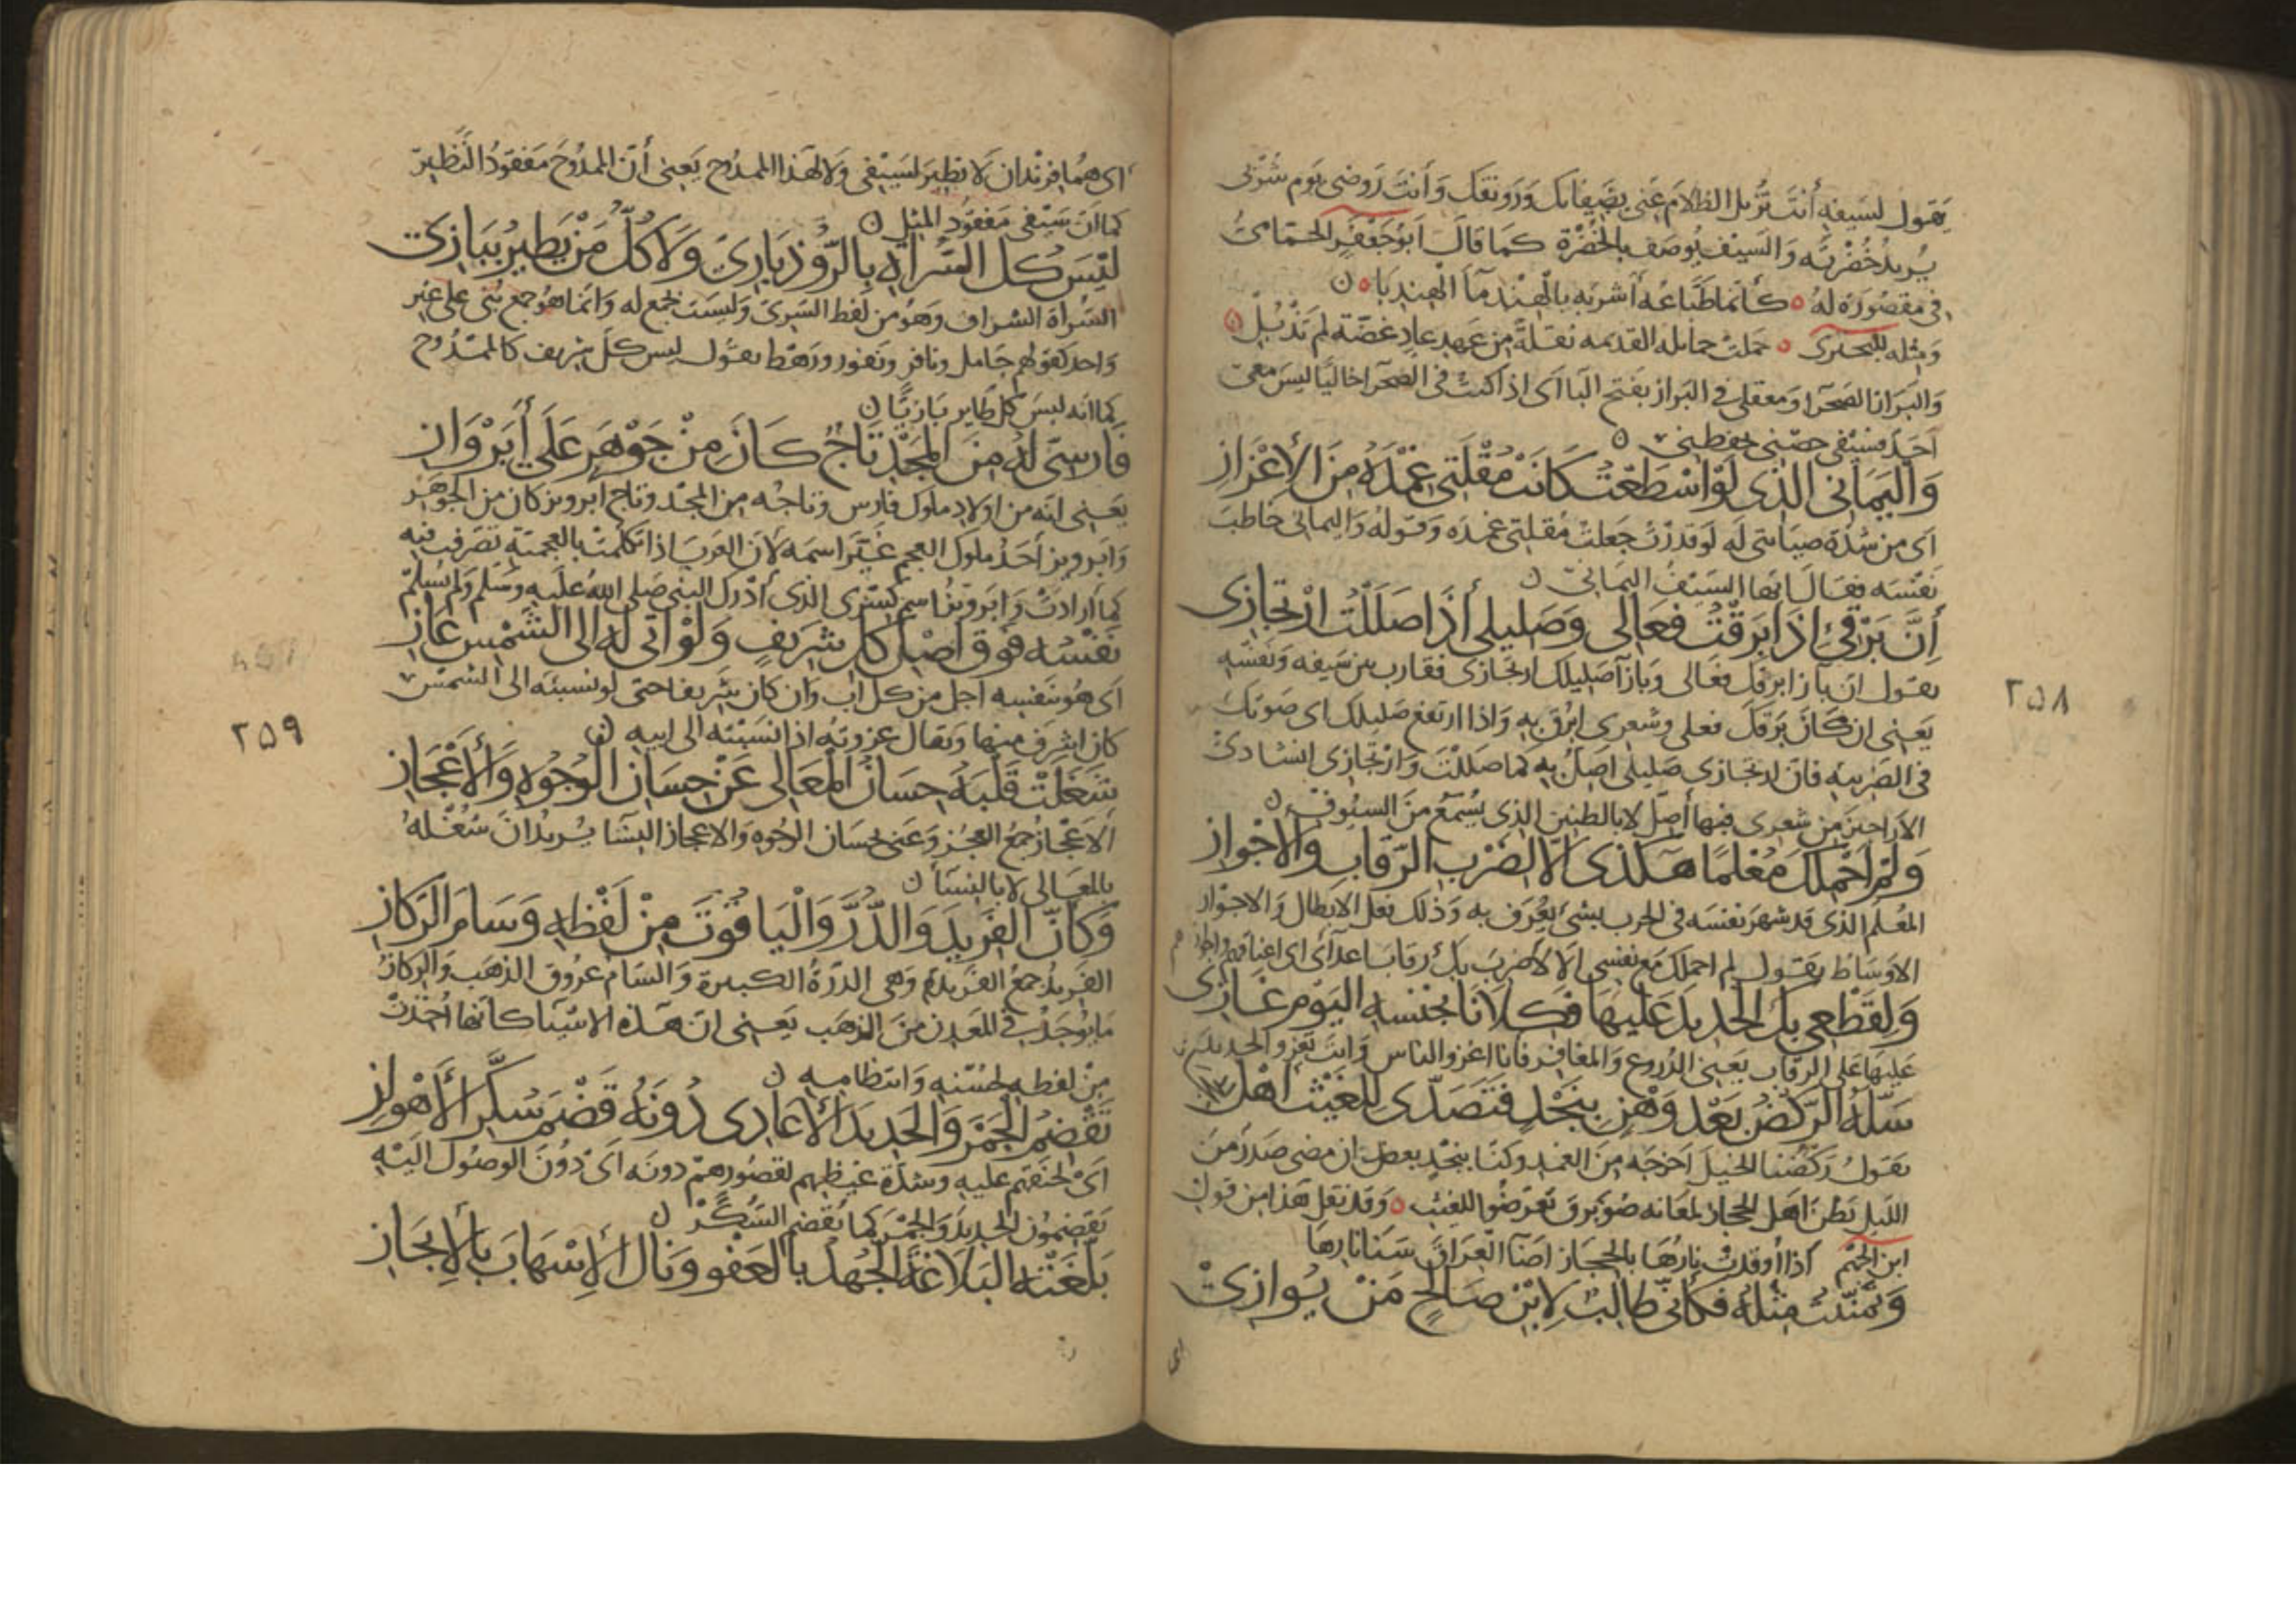 يقول لسيفه أنت تزيل الظلام عنى بصفائك ورونقك وأنت روضى يوم شربى
يريد خضرته والسيف يوصف بالخضرة كما قال أبو جعفر الحمامى
فى مقصورة له كأنما طباعه أشربه بالهند ماء الهندبا
ومثله للبحترى حملت حمايله القديمه بقلة من عهد عاد غضة لم تذبل
والبراز الصحرا ومعقلى فى البراز بفتح البا اى اذا كنت فى الصحرا خاليا ليس معى
احد فسيفى حصنى
واليمانى الذى لو اسطعت كانت مقلتى غمده من الإعزاز
اى من شدة صيانتى له لو قدرت جعلت مقلتى غمده وقوله واليمانى خاطب
نفسه فقال ايها السيف اليمانى
أن برقى إذا برقت فعالى وصليلى أذا صللت ارتجازى
يقول ان بازا برقك فعالى وبازا صليلك ارتجازى فقارب بين سيفه ونفسه
يعنى ان كان برقك فعلى وشعرى ابرق به واذا ارتفع صليلك اى صوتك
فى الضريبه فان ارتجازى صليلى اصل به كما صللت وارتجازى انشادى
الاراجيز من شعرى فبها أصل لا بالطنين الذى يسمع من السيوف
ولم احملك معلما هكذى الا لضرب الرقاب والاجواز
المعلم الذى قد شهر نفسه فى الحرب بشىء يعرف به وذلك فعل الابطال والاجواز
الاوساط يقول لم احملك مع نفسى الا لأضرب بك رقاب اعدآى اى اعناقهم
ولقطعى بك الحديد عليها فكلانا لجنسه اليوم غازى
عليها على الرقاب يعنى الدروع والمغافر فانا اغزو الناس وانت تغزو الحديد
سله الركض بعد وهن بنجد فتصدى للغيث اهل
يقول ركضنا الخيل اخرجه من الغمد وكنا بنجد بعد ان مضى صدر من
الليل فظن اهل الحجاز لمعانه ضوء برق فتعرضوا للغيث وقد نقل هذا من قول
ابن الجهم اذا أوقدت نارها بالحجاز اضآ العراق سنا نارها
وتمنيت مثله فكأنى طالب لابن صالح من يوازى
اى
٢٥٨
اى هما فرندان لا نظير لسيفى ولا لهذا الممدوح يعنى أن الممدوح مفقود النظير
كما أن سيفى مفقود المثل
ليس كل السراة بالروذبارى ولا كل من يطير ببازى
السراة الشراف وهو من لفظ السرى وليست بجمع له وانما هو جمع بنى على غير
واحد كقولهم جامل ونافر ونفور ورهط يقول ليس كل شريف كالممدوح
كما انه ليس كل طاير بازيا
فارسى له من المجد تاج كان من جوهر على أبرواز
يعنى انه من اولاد ملوك فارس وتاجه من المجد وتاج ابرويز كان من الجوهر
وابرويز أحد ملوك العجم غير اسمه لأن العرب اذا تكلمت بالعجمية تصرفت فيه
كما أرادت وابرويز اسم كسرى الذى أدرك النبى صلى الله عليه وسلم ولم يسلم
نفسه فوق اصل كل شريف ولو انى له الى الشمس عاز
اى هو بنفسه اجل من كل اب وان كان شريفا حتى لو نسبته الى الشمس
كان اشرف منها ويقال عزوته اذا نسبته الى ابيه
شغلت قلبه حسان المعالى عن حسان الوجوه والأعجاز
الاعجاز جمع العجز وعنى بحسان الوجوه والاعجاز النسا يريد ان شغله
بالمعالى لا بالنسآ
وكأن الفريد والدر والياقوت من لفظه وسام الركاز
الفريد جمع الفريدة وهى الدرة الكبيرة والسام عروق الذهب والركاز
ما يوجد فى المعدن من الذهب يعنى ان هذه الاشيا كأنها أخذت
من لفظه لحسنه وانتظامه
تقضم الجمر والحديد الأعادى دونه قضم سكر الأهواز
اى لحنقهم عليه وشدة غيظهم لقصورهم دونه اى دون الوصول اليه
يقضمون الحديد والجمر كما يقضم السكر
بلغته البلاغة الجهد بالعفو ونال الإسهاب بالإيجاز
٢٥٩